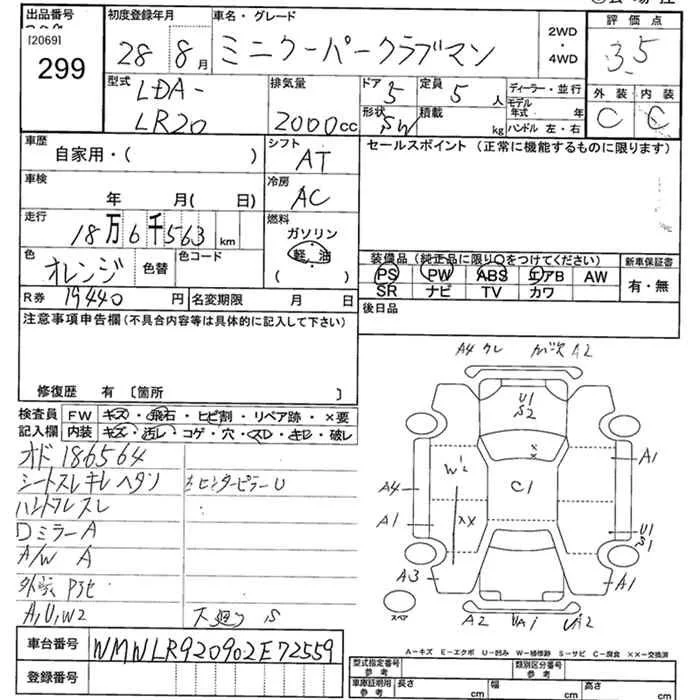 出品番号
[2069]
299
初度登録年月
28 8月
車名・グレード
ミニクーパークラブマン
2WD
・
4WD
評価点
3.5
外装 内装
C C
型式
LDA-
LR20
排気量
2000cc
ドア 5
形状 SW
定員 5人
積載 kg
ディーラー・並行
モデル
年式 年
ハンドル 左・右
車歴
自家用・( )
シフト
AT
セールスポイント(正常に機能するものに限ります)
車検
年 月( 日)
冷房
AC
走行
18万6千563 km
燃料
ガソリン
軽油
( )
色
オレンジ
色替
色コード
装備品(純正品に限り○をつけてください)
PS PW ABS エアB AW
SR ナビ TV カワ
新車保証書
有・無
R券 19440円
名変期限 月 日
後日品
注意事項申告欄(不具合内容等は具体的に記入して下さい)
修復歴 有 〔箇所 〕
検査員
記入欄
FW キズ・飛石・ヒビ割・リペア跡・×要
内装 キズ・汚レ・コゲ・穴・スレ・キレ・破レ
オド 186564
シートスレキレヘタリ
センターピラーU
ハンドルスレ
DミラーA
A/W A
A,U,W2
下廻りS
A4 A2
U1
S2
×
×
W2
C1
A1
A4
A1
××
U1
S1
A3
A1
スペア
A2 A1 U2
A-キズ E-エクボ U-凹み W-補修跡 S-サビ C-腐食 ××-交換済
車台番号 WMWLR920902E72559
登録番号
型式指定番号
参考
類別区分番号
参考
車庫証明用
参考
長さ cm
幅 cm
高さ cm